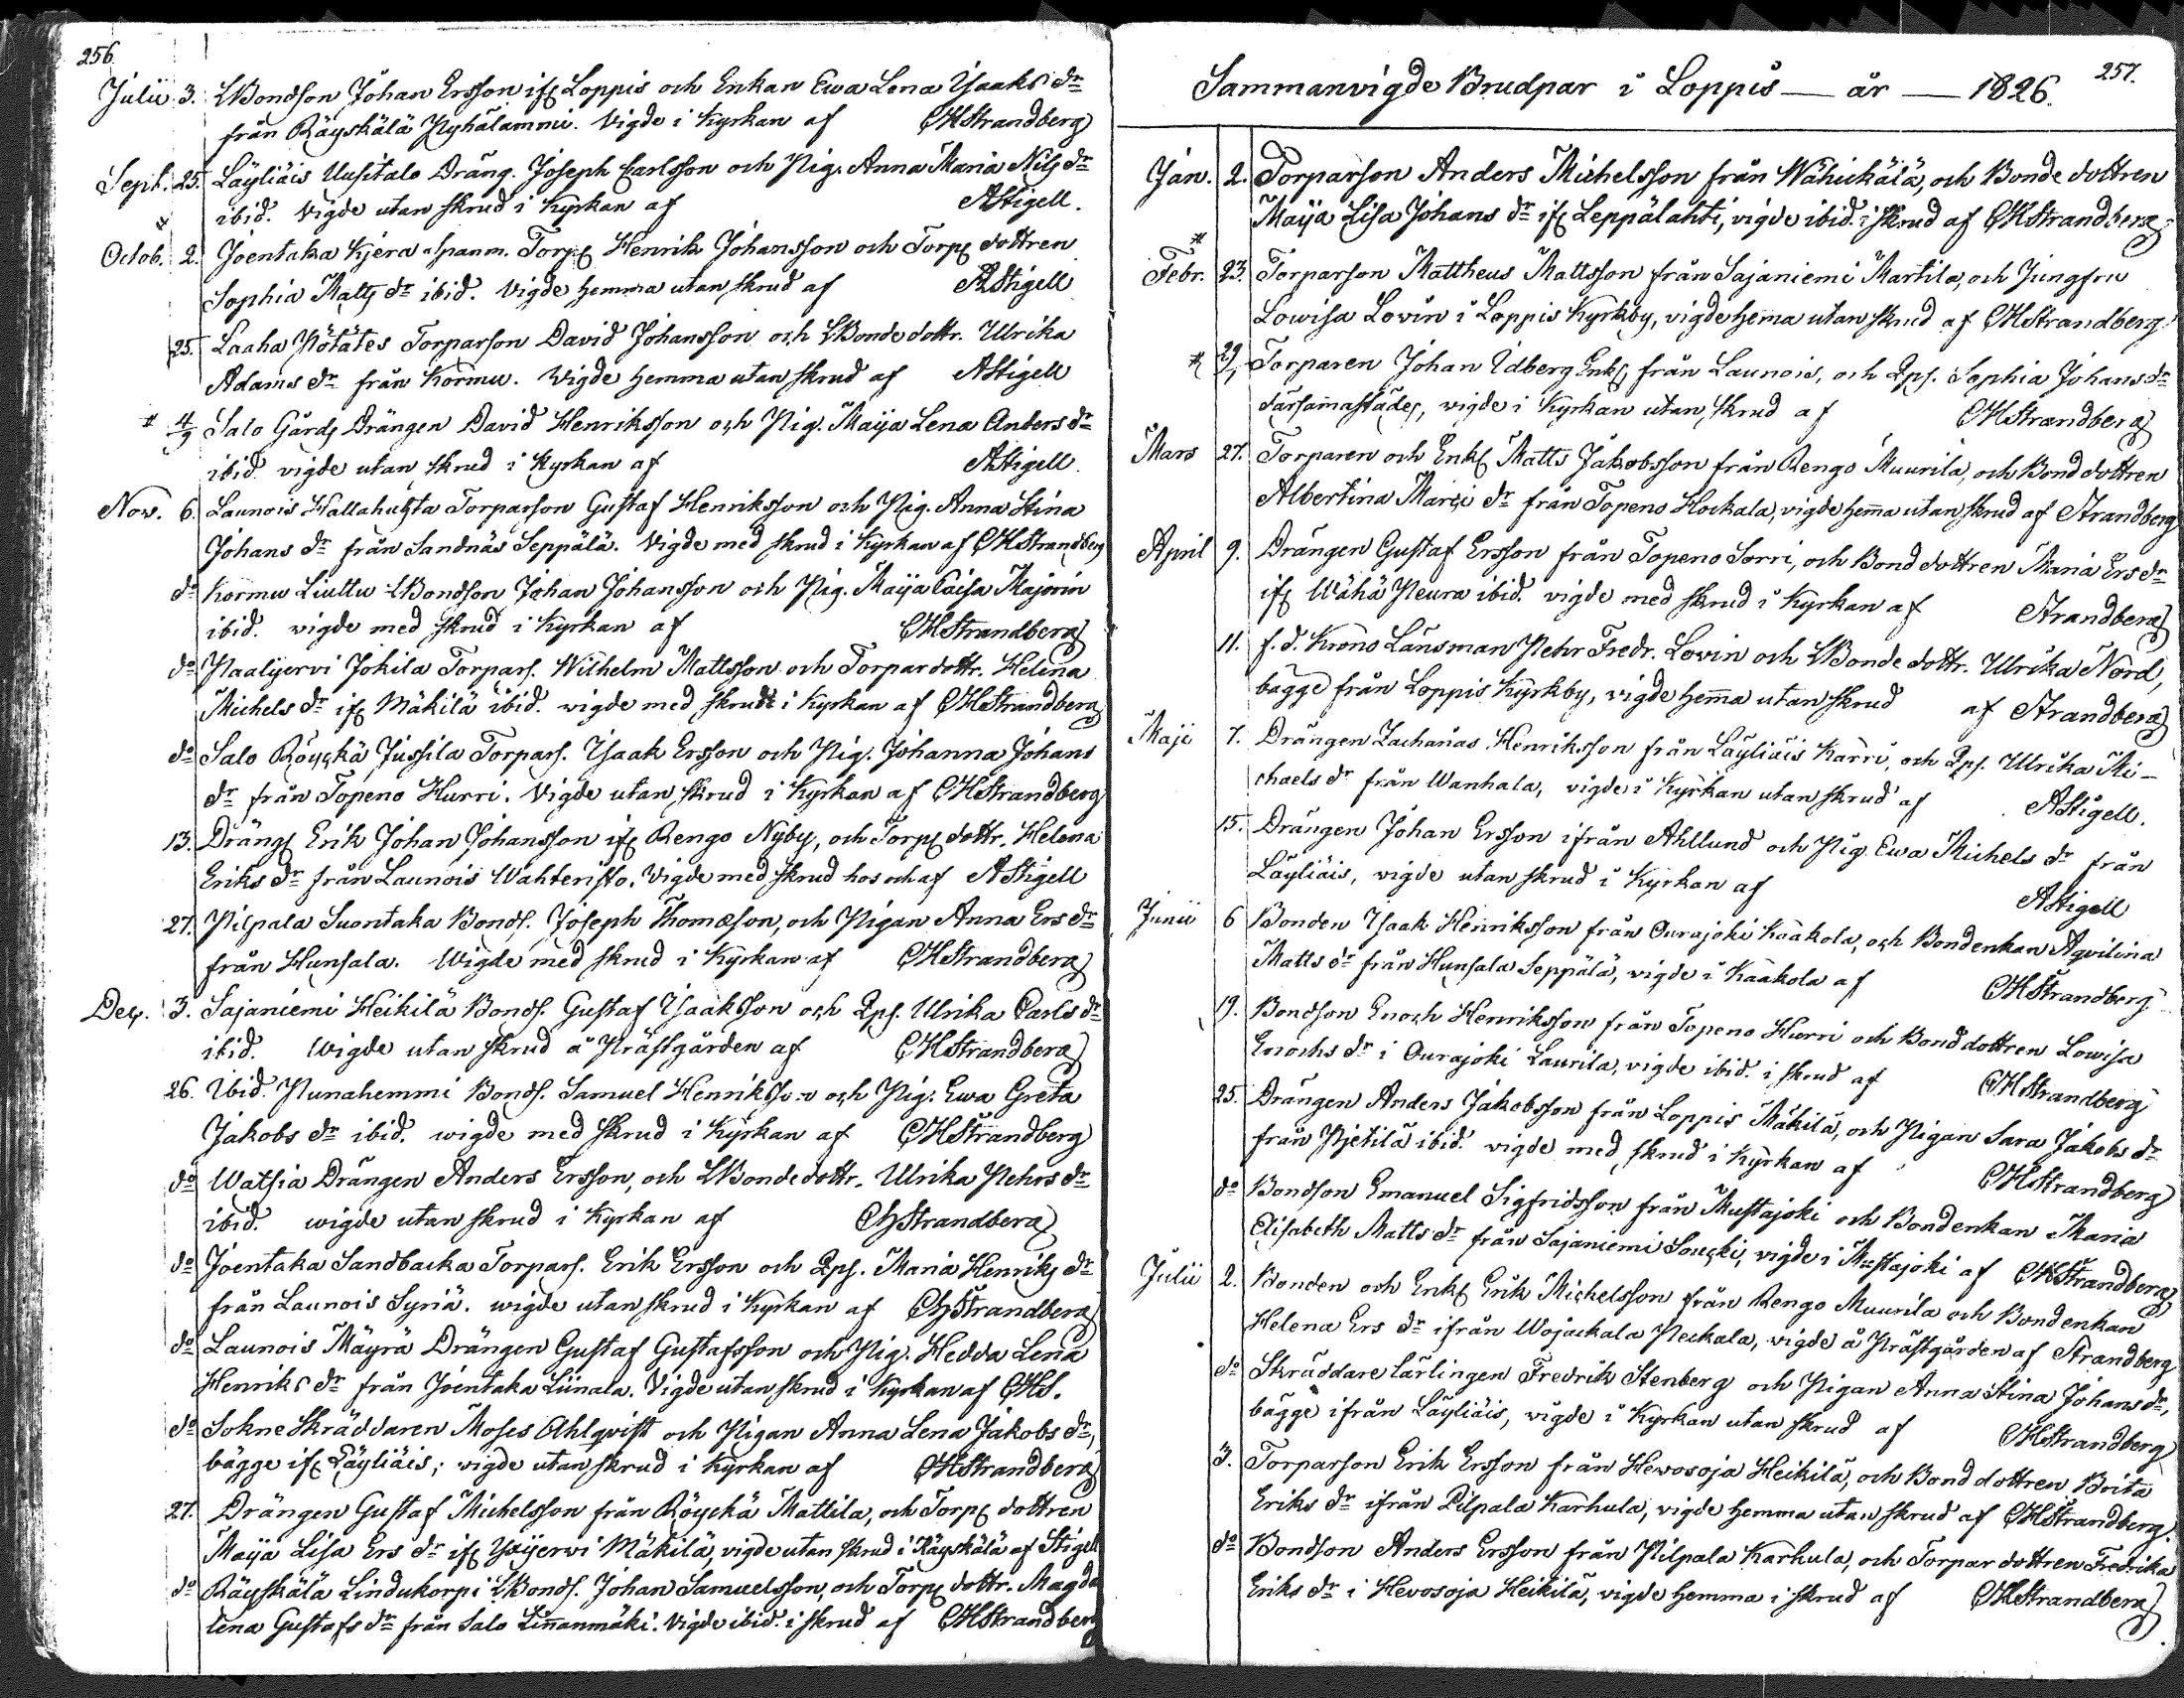 256.
Julii 3. LBondson Johan Ersson ifr Loppis och Enkan Ewa Lena Isaks dr
från Räyskälä Pyhälammi. Vigde i Kyrkan af CHStrandberg
Sept. 25. Läyliäis Uusitalo Dräng. Joseph Carlsson och Pig. Anna Maria Nils dr
ibid. Vigde utan skrud i Kyrkan af AStigell.
Octob. 2. Joentaka Kjera Spanm. Torp Henrik Johansson och Torp dottren
Sophia Matts dr ibid. Vigde hemma utan skrud af AStigell
25. Laaha Pötätes Torparson David Johansson och LBonde dottr. Ulrika
Adams dr från Kormu. Vigde hemma utan skrud af AStigell
# 4/9 Salo Gårds Drängen David Henriksson och Pig. Maija Lena Anders dr
ibid. vigde utan skrud i Kyrkan af AStigell.
Nov. 6. Launois Hallahuhta Torparson Gustaf Henriksson och Pig. Anna Stina
Johans dr från Sandnäs Seppälä. Vigde med skrud i Kyrkan af CHStrandberg
do Kormu Liuttu LBondson Johan Johansson och Pig. Maija Caisa Majorin
ibid. vigde med skrud i Kyrkan af CHStrandberg
do Naalijervi Jokila Torpars. Wilhelm Mattsson och Torpardottr. Helena
Michels dr ifr Mäkilä ibid. vigde med skrud i Kyrkan af CHStrandberg
do Salo Röyskä Jussila Torpars. Isaak Ersson och Pig. Johanna Johans
dr från Topeno Hurri. Vigde utan skrud i Kyrkan af CHStrandberg
13. Dräng Erik Johan Johansson ifr Rengo Nyby, och Torp dottr. Helena
Eriks dr från Launois Wahteristo. Vigde med skrud hos och af AStigell
27. Pilpala Suontaka Bonds. Joseph Thomæson, och Pigan Anna Ers dr
från Hunsala. Wigde med skrud i Kyrkan af CHStrandberg
Dec. 3. Sajaniemi Heikilä Bonds. Gustaf Isaaksson och Pps. Ulrika Carls dr
ibid. Wigde utan skrud å Prästgården af CHStrandberg
26. Ibid. Punahemmi Bonds. Samuel Henriksson och Pig. Ewa Greta
Jakobs dr ibid. wigde med skrud i Kyrkan af CHStrandberg
do Watsia Drängen Anders Ersson, och LBondedottr. Ulrika Pehrs dr
ibid. wigde utan skrud i Kyrkan af CHStrandberg
do Joentaka Sandbacka Torpars. Erik Ersson och Pps. Maria Henriks dr
från Launois Syriä. wigde utan skrud i Kyrkan af CHStrandberg
do Launois Mäyrä Drängen Gustaf Gustafsson och Pig. Hedda Lena
Henriks dr från Joentaka Liinala. Vigde utan skrud i Kyrkan af CHS.
do Sokne Skräddaren Moses Ahlqvist och Pigan Anna Lena Jakobs dr,
bägge ifr Läyliäis; vigde utan skrud i Kyrkan af CHStrandberg
27. Drängen Gustaf Michelsson från Röyckä Mattila, och Torp dottren
Maija Lisa Ers dr ifr Yxijerwi Mäkilä, vigde utan skrud i Räyskälä af Stigell
do Räyskälä Lindukorpi LBonds. Johan Samuelsson, och Torp dottr. Magda
lena Gustafs dr från Salo Linnanmäki. Vigde ibid. i skrud af CHStrandberg
257.
Sammanvigde Brudpar i Loppis — år — 1826.
Jan. 2. Torparson Anders Michelsson från Wähickälä, och Bonde dottren
Maija Lisa Johans dr ifr Leppälahti, vigde ibid. i skrud af CHStrandberg
Febr. 23. Torparson Mattheus Mattsson från Sajaniemi Martila, och Jungfru
Lowisa Lovin i Loppis Kyrkby, vigde hema utan skrud af CHStrandberg
# 29, Torparen Johan Idberg Enkl från Launois, och Pps. Sophia Johans dr
därsammastädes, vigde i Kyrkan utan skrud af CHStrandberg
Mars 27. Torparen och Enkl Matts Jakobsson från Rengo Muurila, och Bond dottren
Albertina Marci dr från Topeno Hockala, vigde hemma utan skrud af Strandberg
April 9. Drängen Gustaf Ersson från Topeno Sorri, och Bond dottren Maria Ers dr
ifr Wähä Peura ibid. vigde med skrud i Kyrkan af Strandberg
11. f. d. Krono Länsman Pehr Fredr. Lovin och LBonde dottr. Ulrika Nord,
bägge från Loppis Kyrkby, vigde hemma utan skrud af Strandberg
Maji 7. Drängen Zacharias Henriksson från Läyliäis Karri, och Pps. Ulrika Mi-
chaels dr från Wanhala, vigde i Kyrkan utan skrud af AStigell.
15. Drängen Johan Ersson ifrån Ahllund och Pig. Ewa Michels dr från
Läyliäis, vigde utan skrud i Kyrkan af AStigell
Junii 6 Bonden Isaak Henriksson från Ourajoki Kaakola, och Bondenkan Aqvilina
Matts dr från Hunsala Seppälä, vigde i Kaakola af CHStrandberg
19. Bondson Enoch Henriksson från Topeno Hurri och Bond dottren Lowisa
Enochs dr i Ourajoki Laurila, vigde ibid. i skrud af CHStrandberg
25. Drängen Anders Jakobsson från Loppis Mäkilä, och Pigan Sara Jakobs dr
från Pietilä ibid. vigde med skrud i Kyrkan af CHStrandberg
do Bondson Emanuel Sigfridsson från Mustajoki och Bondenkan Maria
Elisabeth Matts dr från Sajaniemi Soucki, vigde i Mustajoki af CHStrandberg
Julii 2. Bonden och Enkl Erik Michelsson från Rengo Muurila och Bondenkan
Helena Ers dr ifrån Wojackala Peckala, vigde å Prästgården af Strandberg
do Skräddare lärlingen Fredrik Stenberg och Pigan Anna Stina Johans dr,
bägge ifrån Läyliäis, vigde i Kyrkan utan skrud af CHStrandberg
3. Torparson Erik Ersson från Hevosoja Heikilä, och Bond dottren Brita
Eriks dr ifrån Pilpala Karhula, vigde hemma utan skrud af CHStrandberg
do Bondson Anders Ersson från Pilpala Karhula, och Torpar dottren Fredrika
Eriks dr i Hevosoja Heikilä, vigde hemma i skrud af CHStrandberg